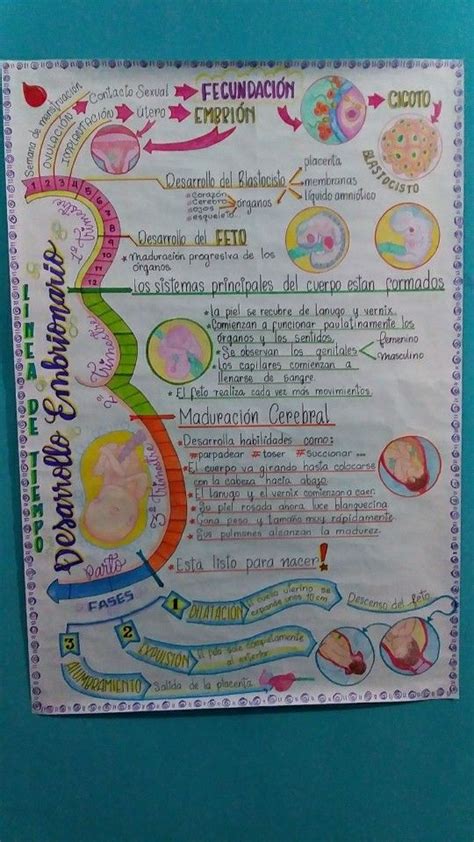 LINEA DE TIEMPO
Desarrollo Embrionario
Semana de menstruación
OVULACIÓN
Contacto Sexual
FECUNDACIÓN
CIGOTO
IMPLANTACIÓN
útero
EMBRIÓN
BLASTOCISTO
1 2 3 4 5 6 7 8 9 10 11 12
1er Trimestre
Desarrollo del Blastocisto
placenta
membranas
líquido amniótico
órganos
corazón
cerebro
ojos
esqueleto
Desarrollo del FETO
* Maduración progresiva de los
órganos.
Los sistemas principales del cuerpo estan formados
2do Trimestre
* la piel se recubre de lanugo y vernix.
* Comienzan a funcionar paulatinamente los
órganos y los sentidos.
* Se observan los genitales
femenino
masculino
* Los capilares comienzan a
llenarse de sangre.
* El feto realiza cada vez más movimientos.
3er Trimestre
Maduración Cerebral
* Desarrolla habilidades como:
#parpadear #toser #succionar ...
* El cuerpo va girando hasta colocarse
con la cabeza hacia abajo.
* El lanugo y el vernix comienzan a caer.
* Su piel rosada ahora luce blanquecina.
* Gana peso y tamaño muy rápidamente.
* Sus pulmones alcanzan la madurez.
* Está listo para nacer!
Parto
FASES
1
DILATACIÓN
El cuello uterino se
expande unos 10 cm
Descenso del feto.
2
EXPULSIÓN
El feto sale completamente
al exterior.
3
ALUMBRAMIENTO
Salida de la placenta.